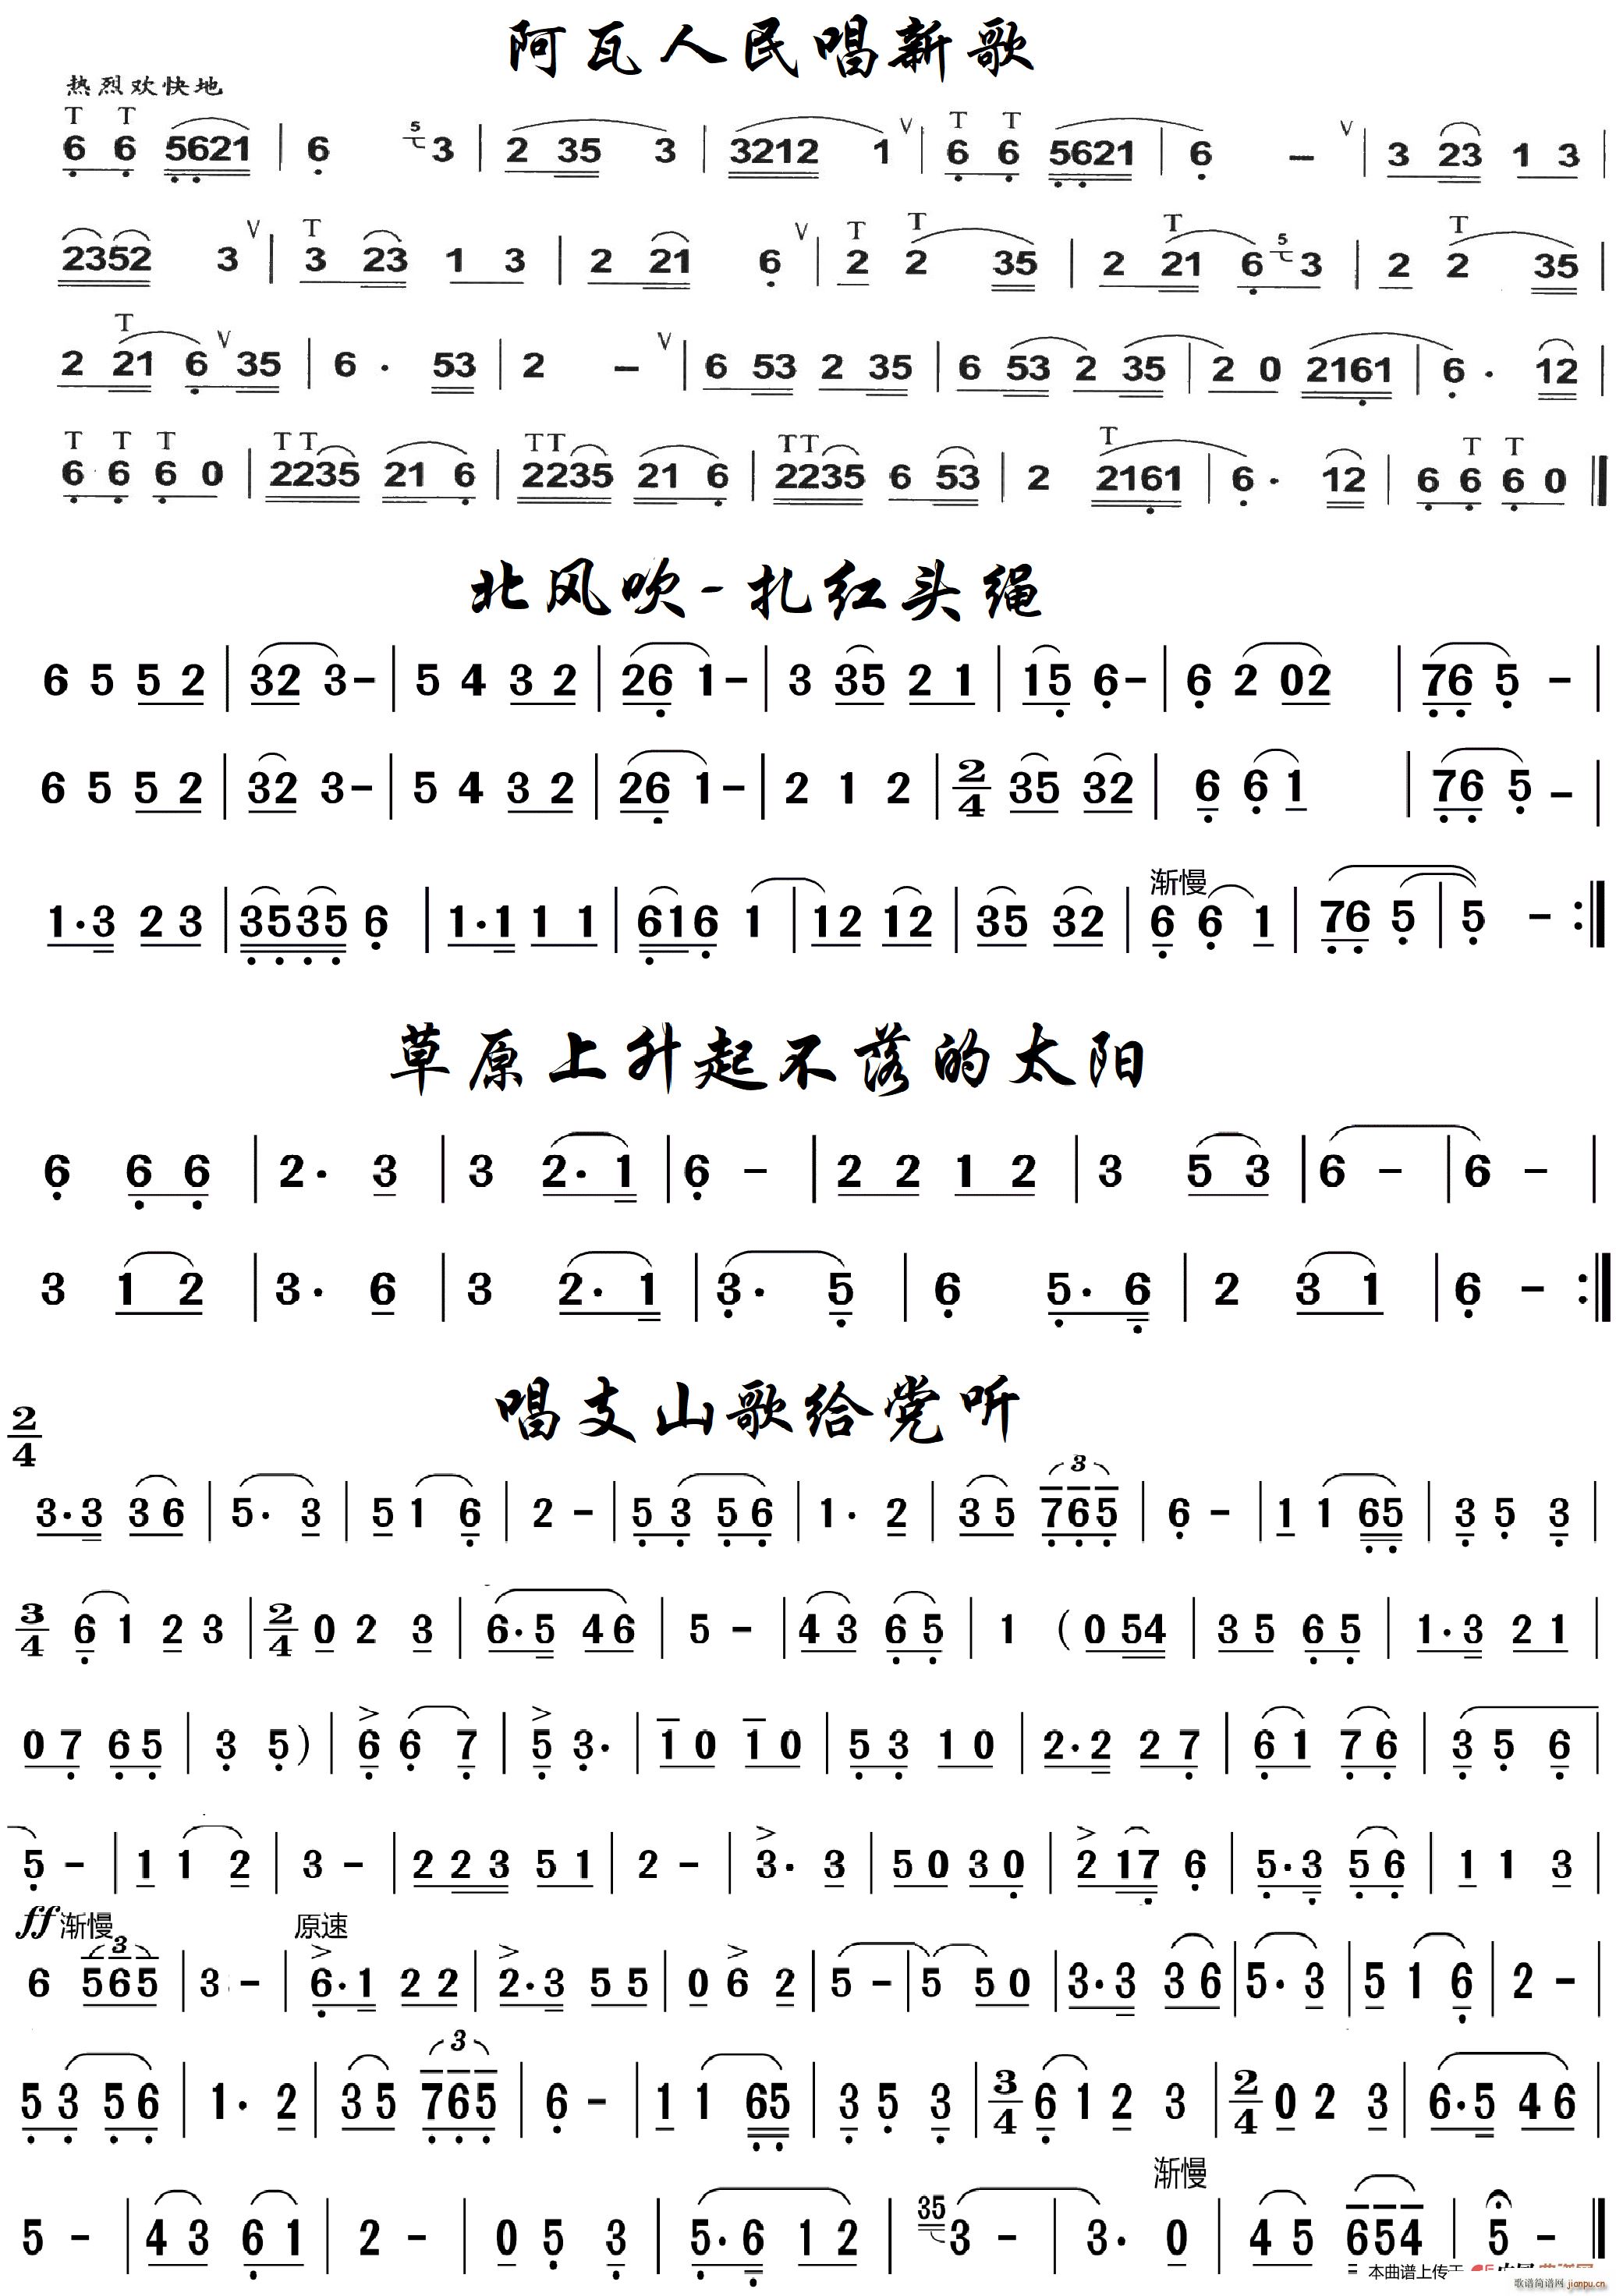 阿瓦人民唱新歌
热烈欢快地
T T 5 V T T V
6 6 5621 | 6 3 | 2 35 3 | 3212 1 | 6 6 5621 | 6 – | 3 23 1 3 |
V T V T T T 5 T
2352 3 | 3 23 1 3 | 2 21 6 | 2 2 35 | 2 21 6 3 | 2 2 35 |
T V V
2 21 6 35 | 6 · 53 | 2 – | 6 53 2 35 | 6 53 2 35 | 2 0 2161 | 6 · 12 |
T T T T T T T T T T T T
6 6 6 0 | 2235 21 6 | 2235 21 6 | 2235 6 53 | 2 2161 | 6 · 12 | 6 6 6 0 ‖
北风吹-扎红头绳
6 5 5 2 | 32 3 – | 5 4 3 2 | 26 1 – | 3 35 2 1 | 15 6 – | 6 2 02 | 76 5 – |
6 5 5 2 | 32 3 – | 5 4 3 2 | 26 1 – | 2 1 2 | 2/4 35 32 | 6 6 1 | 76 5 – |
渐慢
1·3 2 3 | 3535 6 | 1·1 1 1 | 616 1 | 12 12 | 35 32 | 6 6 1 | 76 5 | 5 – :‖
草原上升起不落的太阳
6 6 6 | 2· 3 | 3 2· 1 | 6 – | 2 2 1 2 | 3 5 3 | 6 – | 6 – |
3 1 2 | 3· 6 | 3 2· 1 | 3· 5 | 6 5· 6 | 2 3 1 | 6 – :‖
唱支山歌给党听
2/4
3
3·3 3 6 | 5· 3 | 5 1 6 | 2 – | 5 3 5 6 | 1· 2 | 3 5 765 | 6 – | 1 1 65 | 3 5 3 |
3/4 6 1 2 3 | 2/4 0 2 3 | 6·5 4 6 | 5 – | 4 3 6 5 | 1 ( 0 54 | 3 5 6 5 | 1·3 2 1 |
> >
0 7 6 5 | 3 5 ) | 6 6 7 | 5 3· | 1 0 1 0 | 5 3 1 0 | 2·2 2 7 | 6 1 7 6 | 3 5 6 |
> >
5 – | 1 1 2 | 3 – | 2 2 3 5 1 | 2 – | 3· 3 | 5 0 3 0 | 2 17 6 | 5·3 5 6 | 1 1 3 |
ff 渐慢 原速
3 > > >
6 565 | 3 – | 6·1 2 2 | 2·3 5 5 | 0 6 2 | 5 – | 5 5 0 | 3·3 3 6 | 5· 3 | 5 1 6 | 2 – |
3
5 3 5 6 | 1· 2 | 3 5 765 | 6 – | 1 1 65 | 3 5 3 | 3/4 6 1 2 3 | 2/4 0 2 3 | 6·5 4 6 |
渐慢
5 – | 4 3 6 1 | 2 – | 0 5 3 | 5·6 1 2 | 35 3 – | 3· 0 | 4 5 654 | 5 – ‖
本曲谱上传于
歌谱简谱网 jianpu.cn